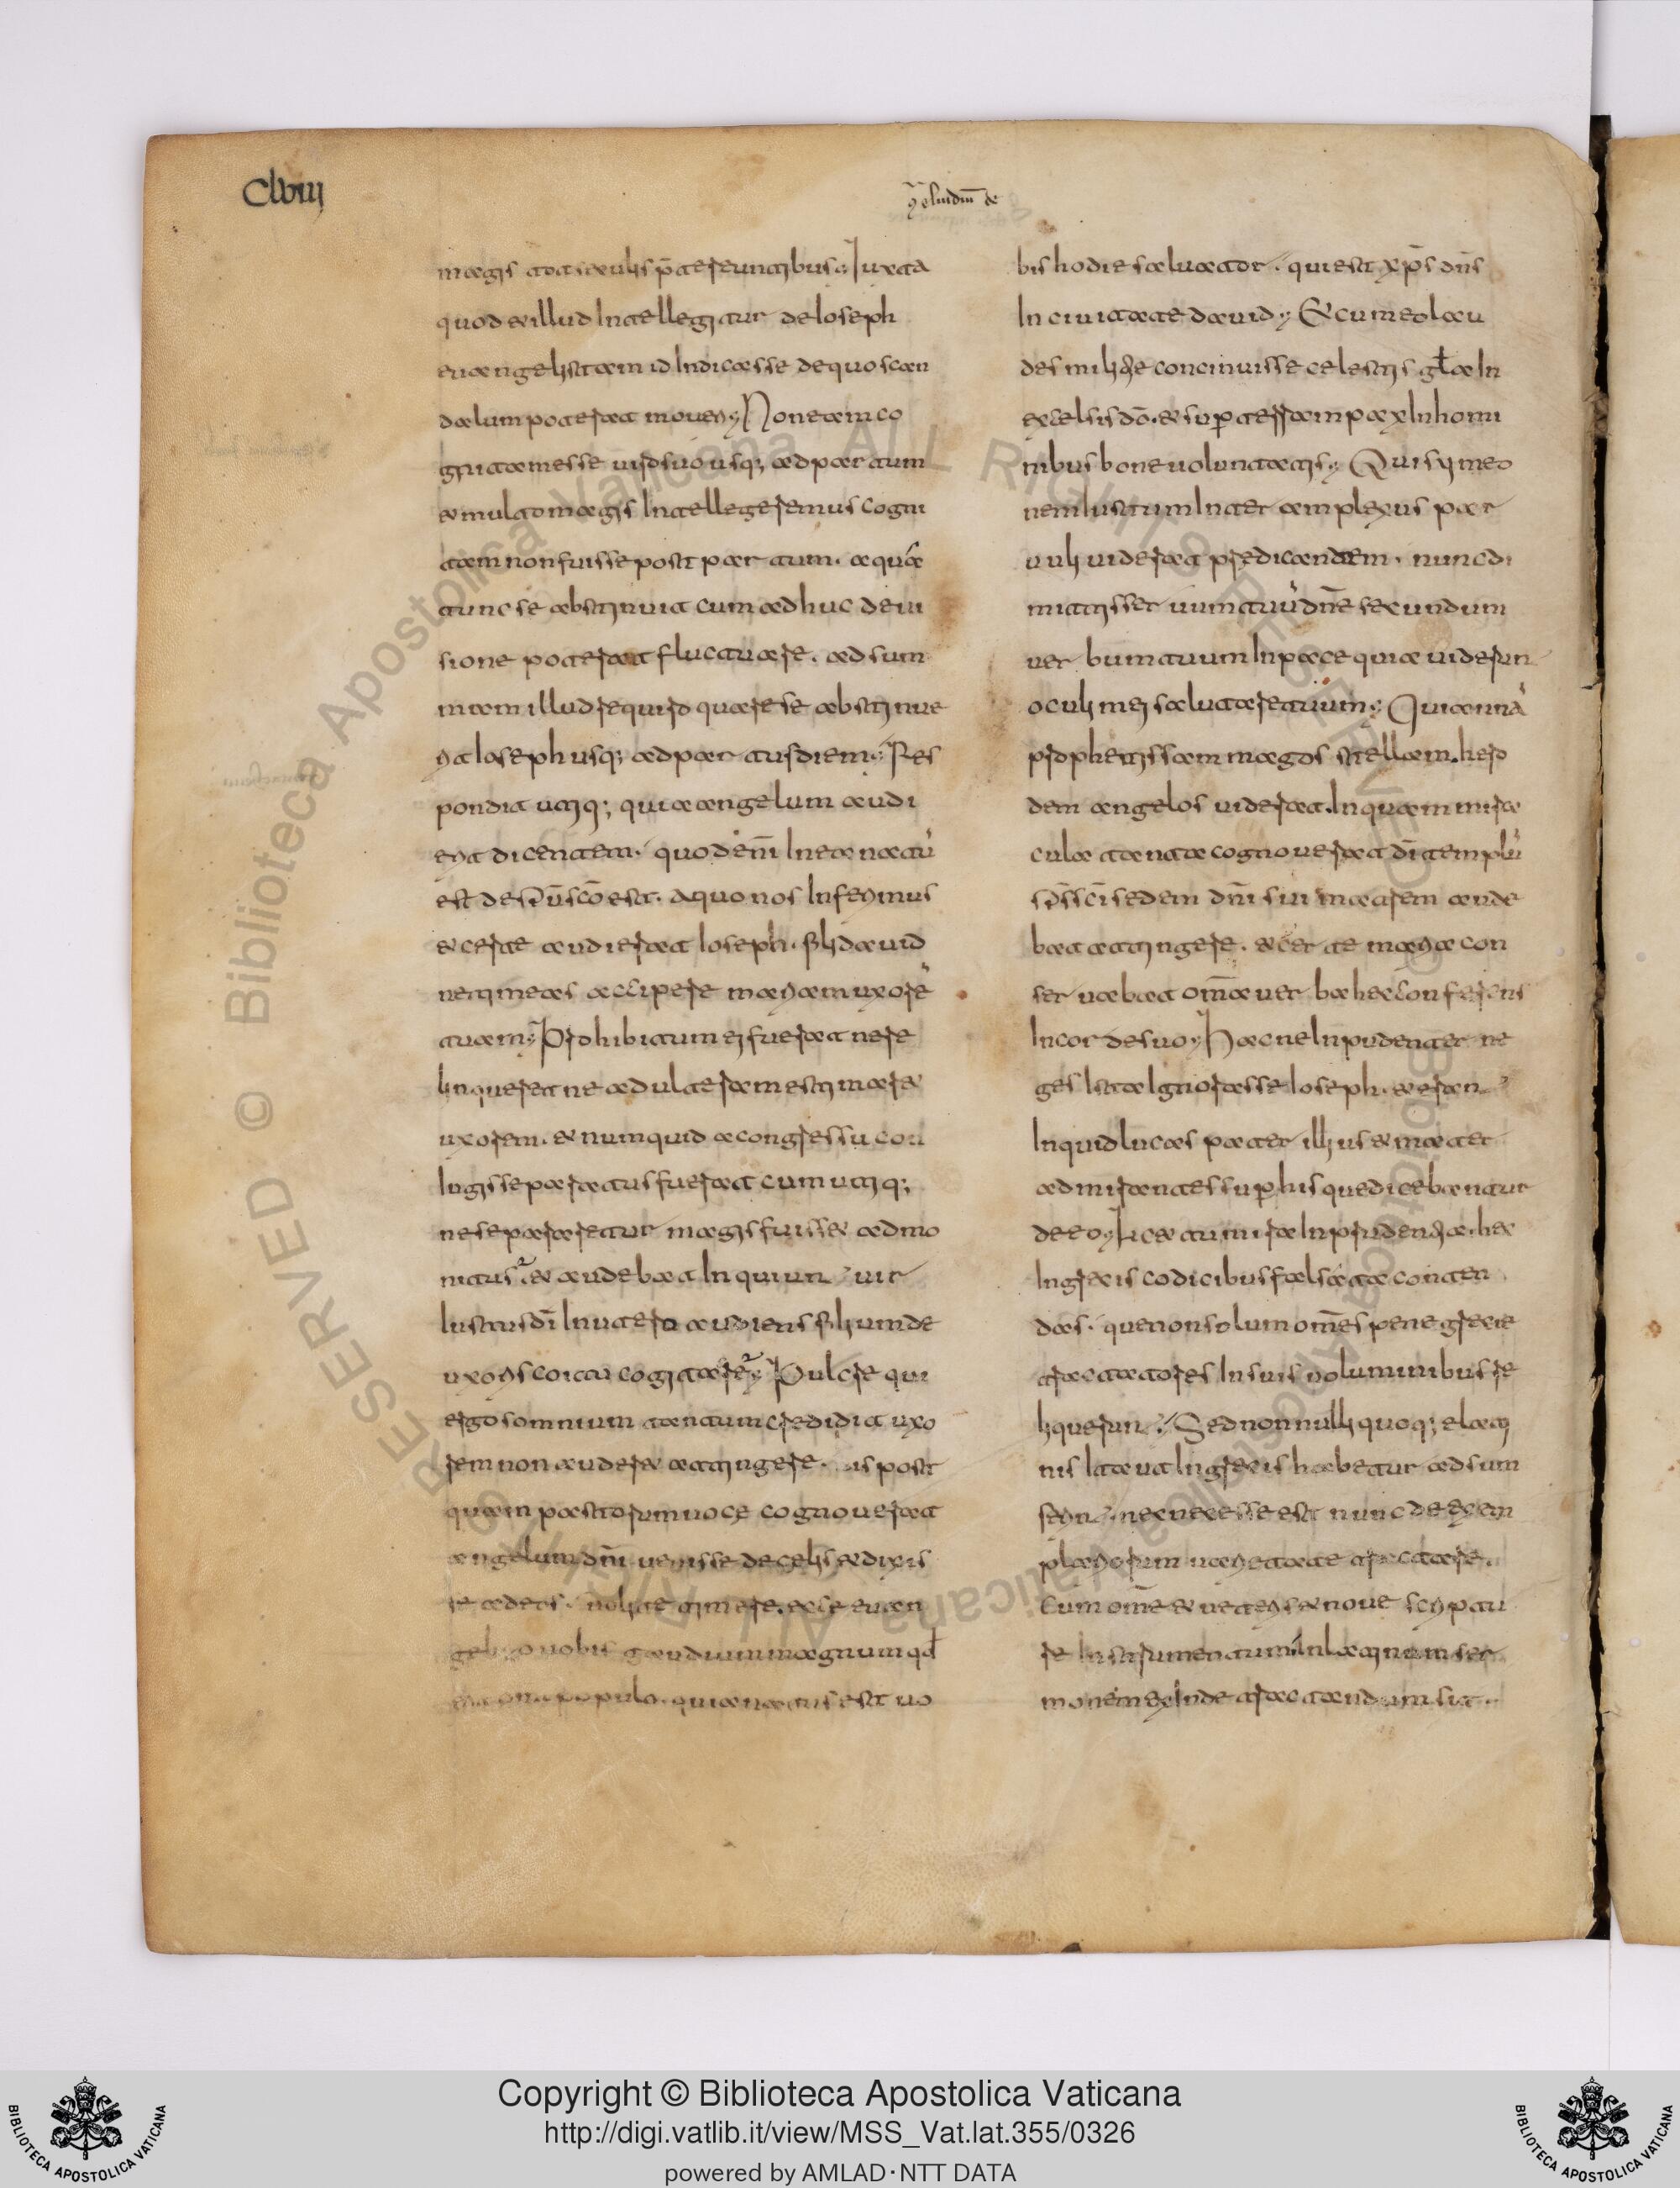 Clviij
ꝯ eluidiū de
magis tot saeculis p̄terentibus; Iuxta
quod et illud Intellegitur de Ioseph
euangelistam id Indicasse de quo scan
dalum poterat moueri; Non eam co
gnitam esse uiro suo usq; ad partum
et multo magis Intellegeremus cogni
tam non fuisse post partum. a qua
tunc se abstinuit cum adhuc de ui
sione poterat fluctuare. ad sum
mam illud requiro quare se abstinue
rit Ioseph usq; ad partus diem; Res
pondit utiq; quia angelum audi
erit dicentem. quod enī In ea natū
est de sp̄u sc̄o est. A quo nos Inferimus
et certe audierat Ioseph. fili dauid
ne timeas accipere mariam uxorē
tuam; Prohibitum ei fuerat ne re
linqueret ne adulteram estimaret
uxorem. et numquid a congressu con
iugis separatus fuerat cum utiq;
ne separaretur magis fuisset admo
nitus. et audebat Inquiunt uir
Iustus dī In utero audiens filium de
uxoris coitu cogitare; Pulcre qui
ergo somnium tantum credidit uxo
rem non auderet attingere. is post
quam pastorum uoce cognouerat
angelum dn̄i uenisse de celis et dixis
se ad eos. nolite timere. ecce euan
gelizo uobis gaudium magnum qd
erit omi populo. quia natus est uo
bis hodie saluator. qui est xp̄s dn̄s
In ciuitate dauid; Et cum eo lau
des militie concinuisse celestis gl̄a In
excelsis dō. et sup terram pax In homi
nibus bone uoluntatis; Qui symeo
nem Iustum Inter amplexus par
uuli uiderat predicantem. nunc di
mittis seruum tuū dn̄e secundum
uerbum tuum In pace quia uiderunt
oculi mei salutare tuum; Qui annā
prophetissam magos stellam. hero
dem angelos uiderat. Inquam mira
cula tanta cognouerat dī templū
sp̄s sc̄i sedem dn̄i sui matrem aude
bat attingere. et certe maria con
seruabat om̄a uerba hec conferens
In corde suo; Hac ne Inpudenter ne
ges Ista Ignorasse Ioseph. et erant
Inquid lucas pater illius et mater
admirantes sup his que dicebantur
de eo; Licet tu mira Inprudentia. hec
In grecis codicibus falsata conten
das. que non solum om̄es pene grecie
tractatores In suis uoluminibus re
liquerunt; Sed nonnulli quoq; e lati
nis Ita ut In grecis habetur adsum
serunt. nec necesse est nunc de exem
plariorum uarietate tractare.
Cum om̄e et ueteris et noue scripau
re Instrumentum In latinum ser
monem exInde tractandum sit.
Copyright © Biblioteca Apostolica Vaticana
http://digi.vatlib.it/view/MSS_Vat.lat.355/0326
powered by AMLAD·NTT DATA
BIBLIOTECA APOSTOLICA VATICANA
BIBLIOTECA APOSTOLICA VATICANA